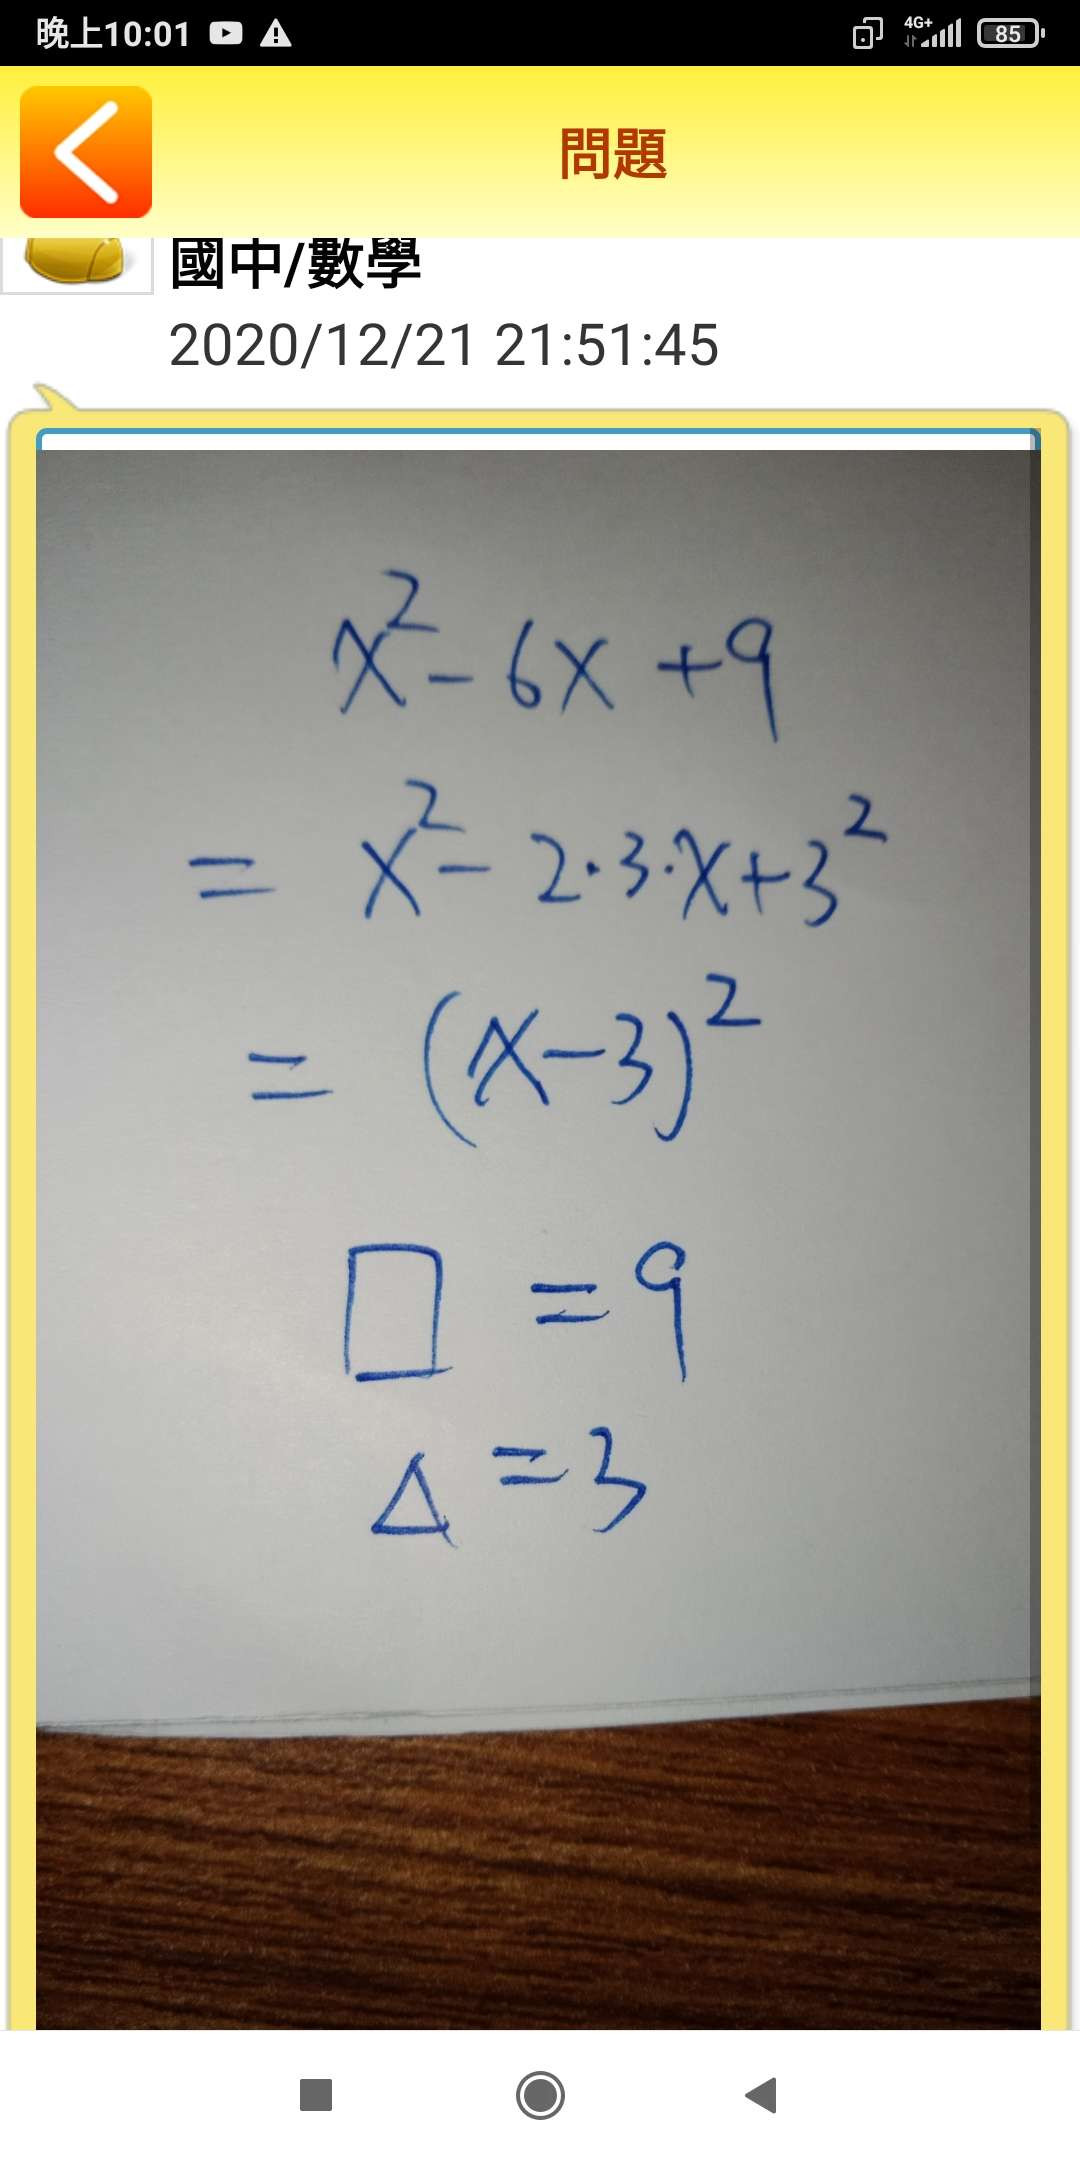 晚上10:01 4G+ 85
問題
國中/數學
2020/12/21 21:51:45
x²-6x+9
= x²-2·3·x+3²
= (x-3)²
□ =9
△ =3